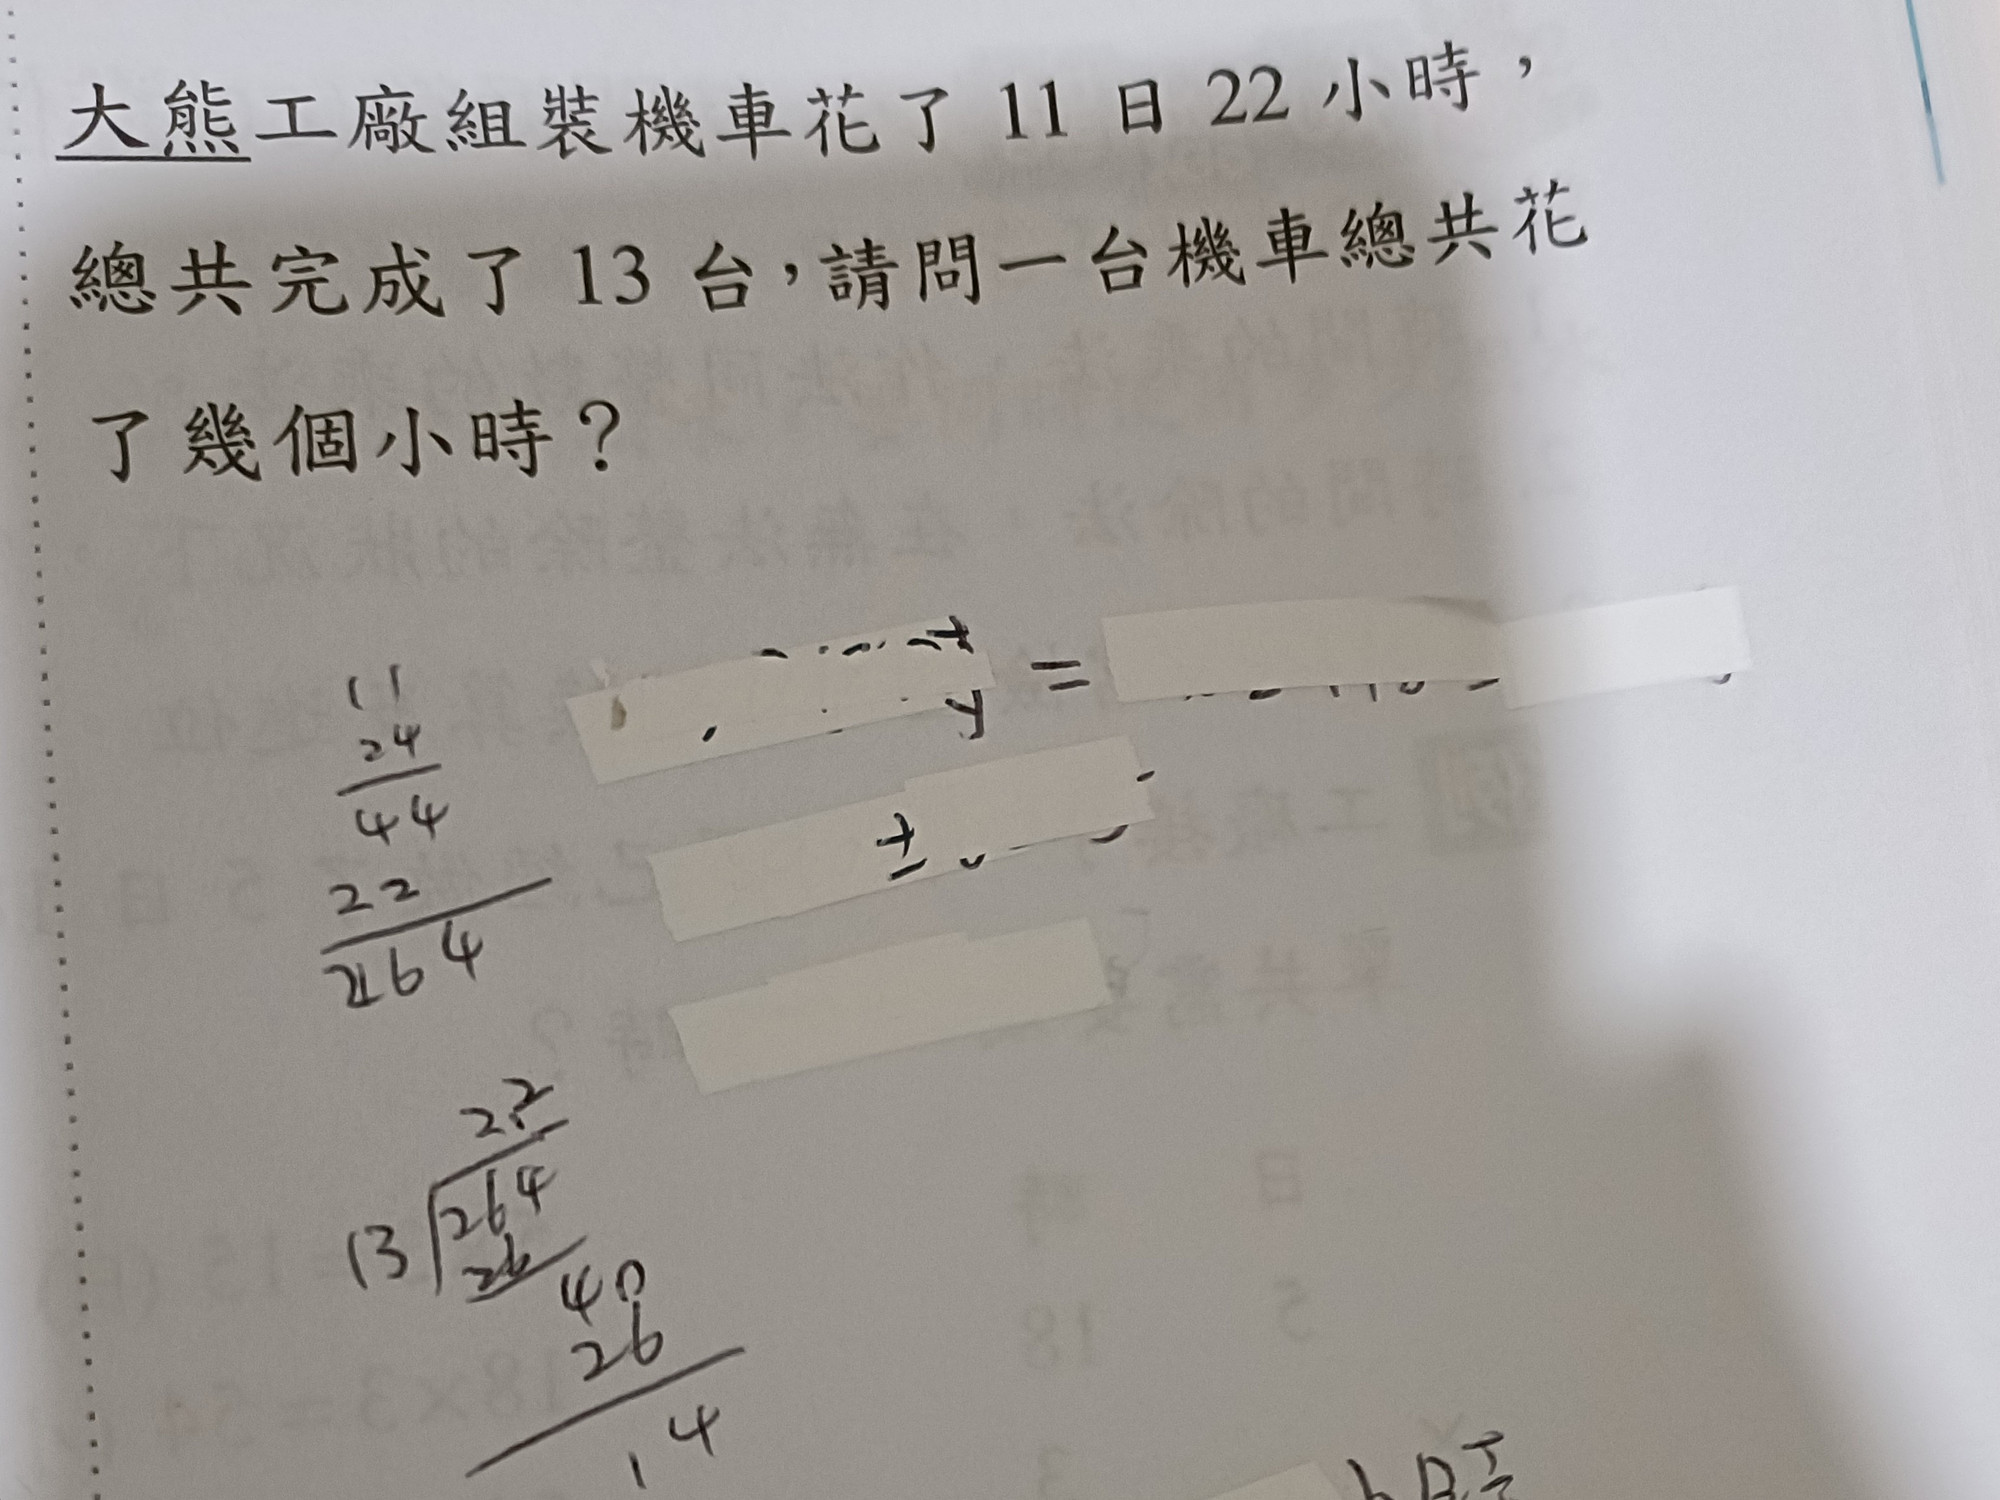 大熊工廠組裝機車花了 11 日 22 小時，
總共完成了 13 台，請問一台機車總共花
了幾個小時？
11
24
44
22
264
=
22
13 264
26
40
26
14